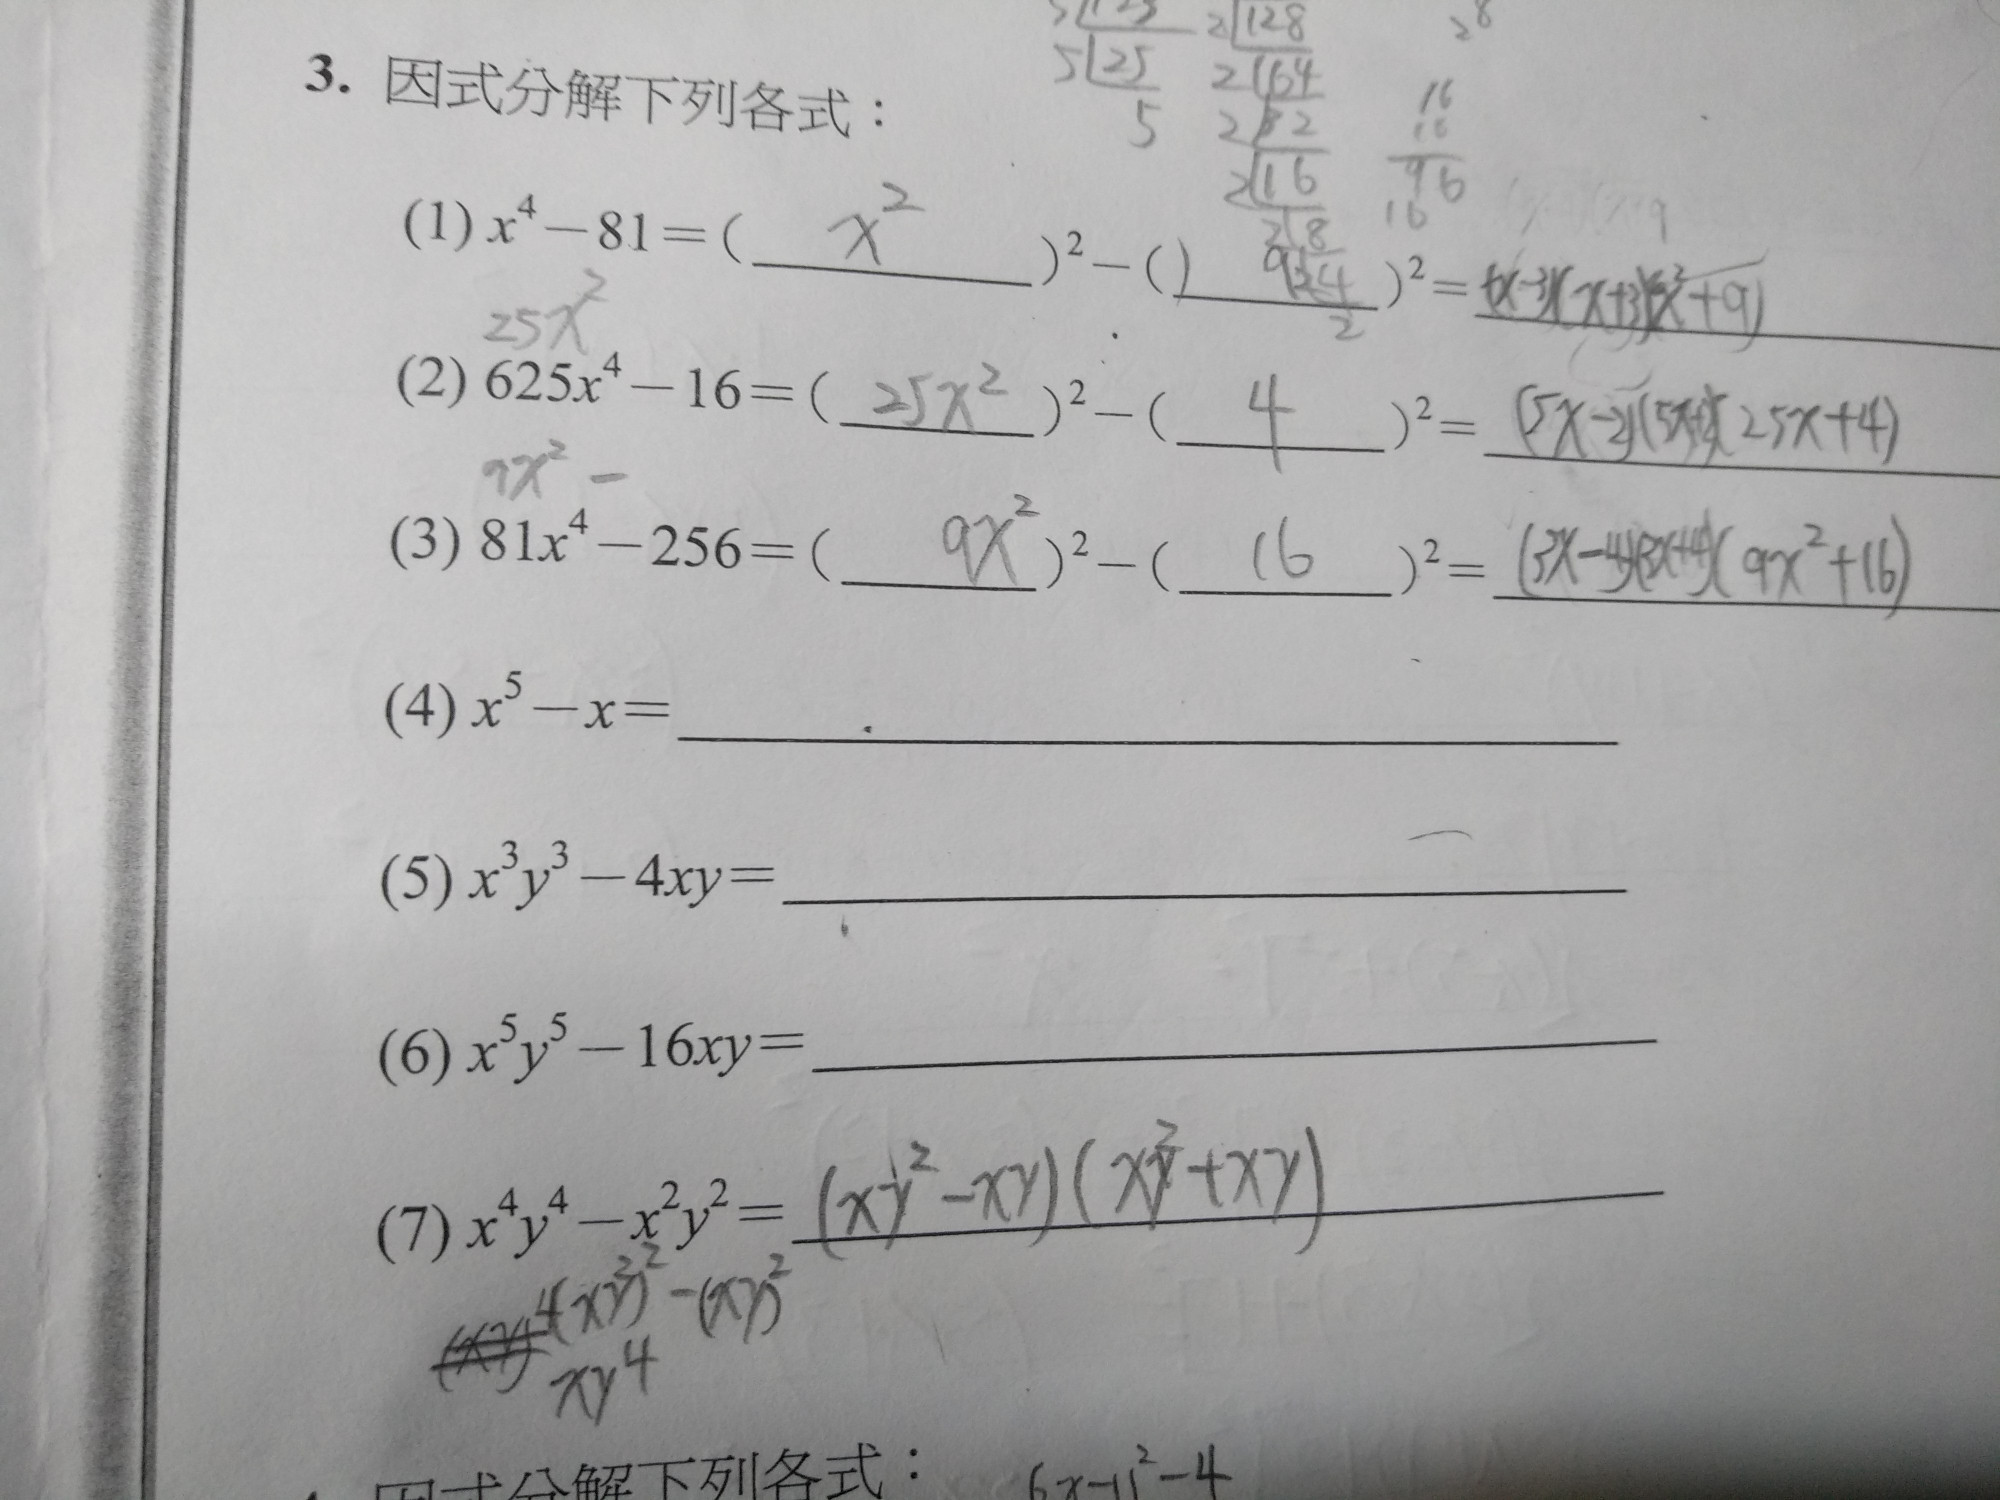 5 25 2 128 2⁸
2 64
5 2 32 16
2 16 96
2 8 16
3. 因式分解下列各式：
(1) x⁴－81＝( x² )²－( 9 )²＝(x-3)(x+3)(x²+9)
25x²
(2) 625x⁴－16＝( 25x² )²－( 4 )²＝(5x-2)(5x+2)(25x+4)
9x² -
(3) 81x⁴－256＝( 9x² )²－( 16 )²＝(3x-4)(3x+4)(9x²+16)
(4) x⁵－x＝
(5) x³y³－4xy＝
(6) x⁵y⁵－16xy＝
(7) x⁴y⁴－x²y²＝(xy²-xy)(xy²+xy)
(xy²)²-(xy)²
xy⁴
因式分解下列各式：